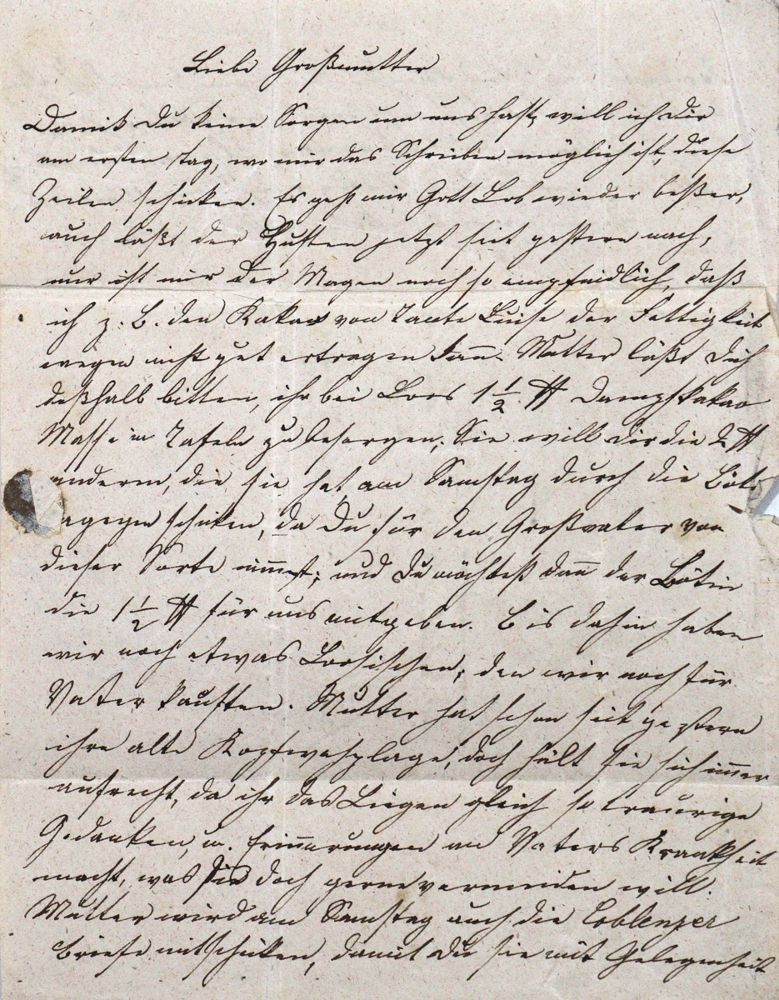 Liebe Großmutter
Damit Du keine Sorgen um uns hast, will ich Dir
am ersten Tag, wo mir das Schreiben möglich ist, diese
Zeilen schicken. Es geht mir Gott Lob wieder beßer,
auch läßt der Husten jetzt seit gestern nach,
nur ist mir der Magen noch so empfindlich, daß
ich z. B. den Kakao von Tante Luise der Fettigkeit
wegen nicht gut ertragen kann. Mutter läßt Dich
deßhalb bitten, ihr bei Loos 1 1/2 ℔ Dampfkakao
Masse in Tafeln zu besorgen; Sie will Dir die 2 ℔
anderen, die sie hat, am Samstag durch die
agegen schicken, da Du für den Großvater von
dieser Sorte nimmst; und Du möchtest dann der Bötin
die 1 1/2 ℔ für uns mitgeben. Bis dahin haben
wir noch etwas Loosischen, den wir noch für
Vater kauften. Mutter hat schon seit gestern
ihre alte Kopfwehplage, doch hält sie sich immer
aufrecht, da ihr das Liegen gleich so traurige
Gedanken, u. Erinnerungen an Vaters Krankheit
macht, was sie doch gerne vermeiden will.
Mutter wird am Samstag auch die Coblenzer
Briefe mitschicken, damit Du sie mit Gelegenheit